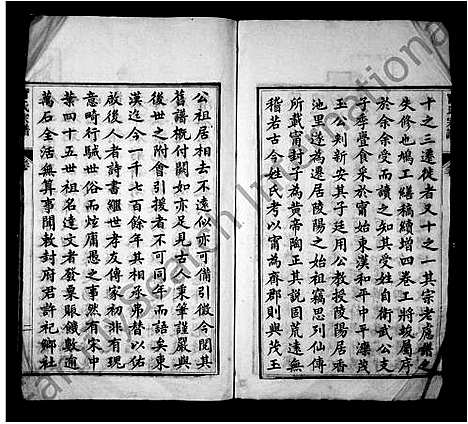 十之三遷徙者又十之一其宗老慮譜之
失修也鳩工繕稿續增四卷工將竣屬序
於余余受而讀之知其受姓自衛武公支
子季亹食采於甯始東漢和平中平灤茂
玉公刺新安其子廷用公教授陵陽居香
池里遂為遷居陵陽之始祖竊思列仙傳
所載甯封子為黃帝陶正其說固荒遠無
稽若古今姓氏考以甯為齊郡則與茂玉
公祖居相去不遠似亦可備引徵今閱其
舊譜概付闕如亦足見古人秉筆謹嚴與
後世之附會引援者不可同年而語矣東
漢迄今一千七百餘年其相承弗替以佑
啟後人者詩書繼世孝友傳家初非有現
意畸行駴世俗而炫庸愚之事然有宋中
葉四十五世祖名達文者發粟賑饑數逾
萬石全活無算事聞敕封府君許祀鄉社